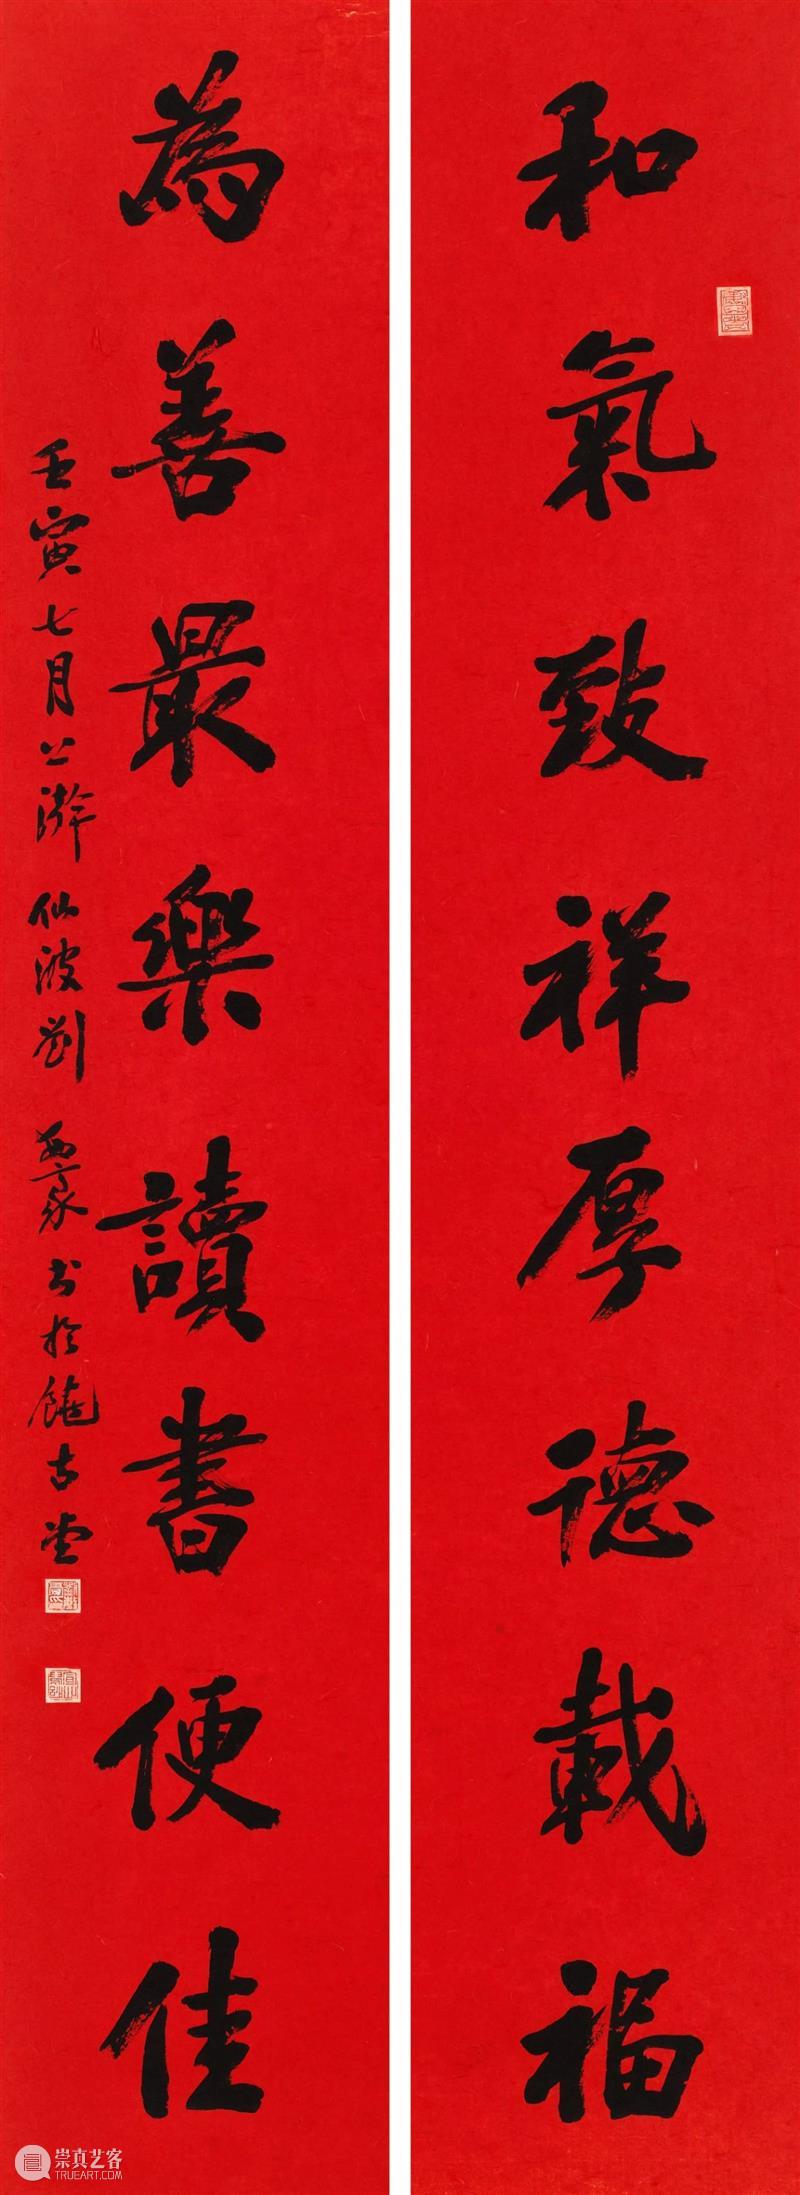 和氣致祥厚德載福
為善最樂讀書便佳
壬寅七月 仙波劉 書於饒古堂
崇真艺客
TRUEART.COM